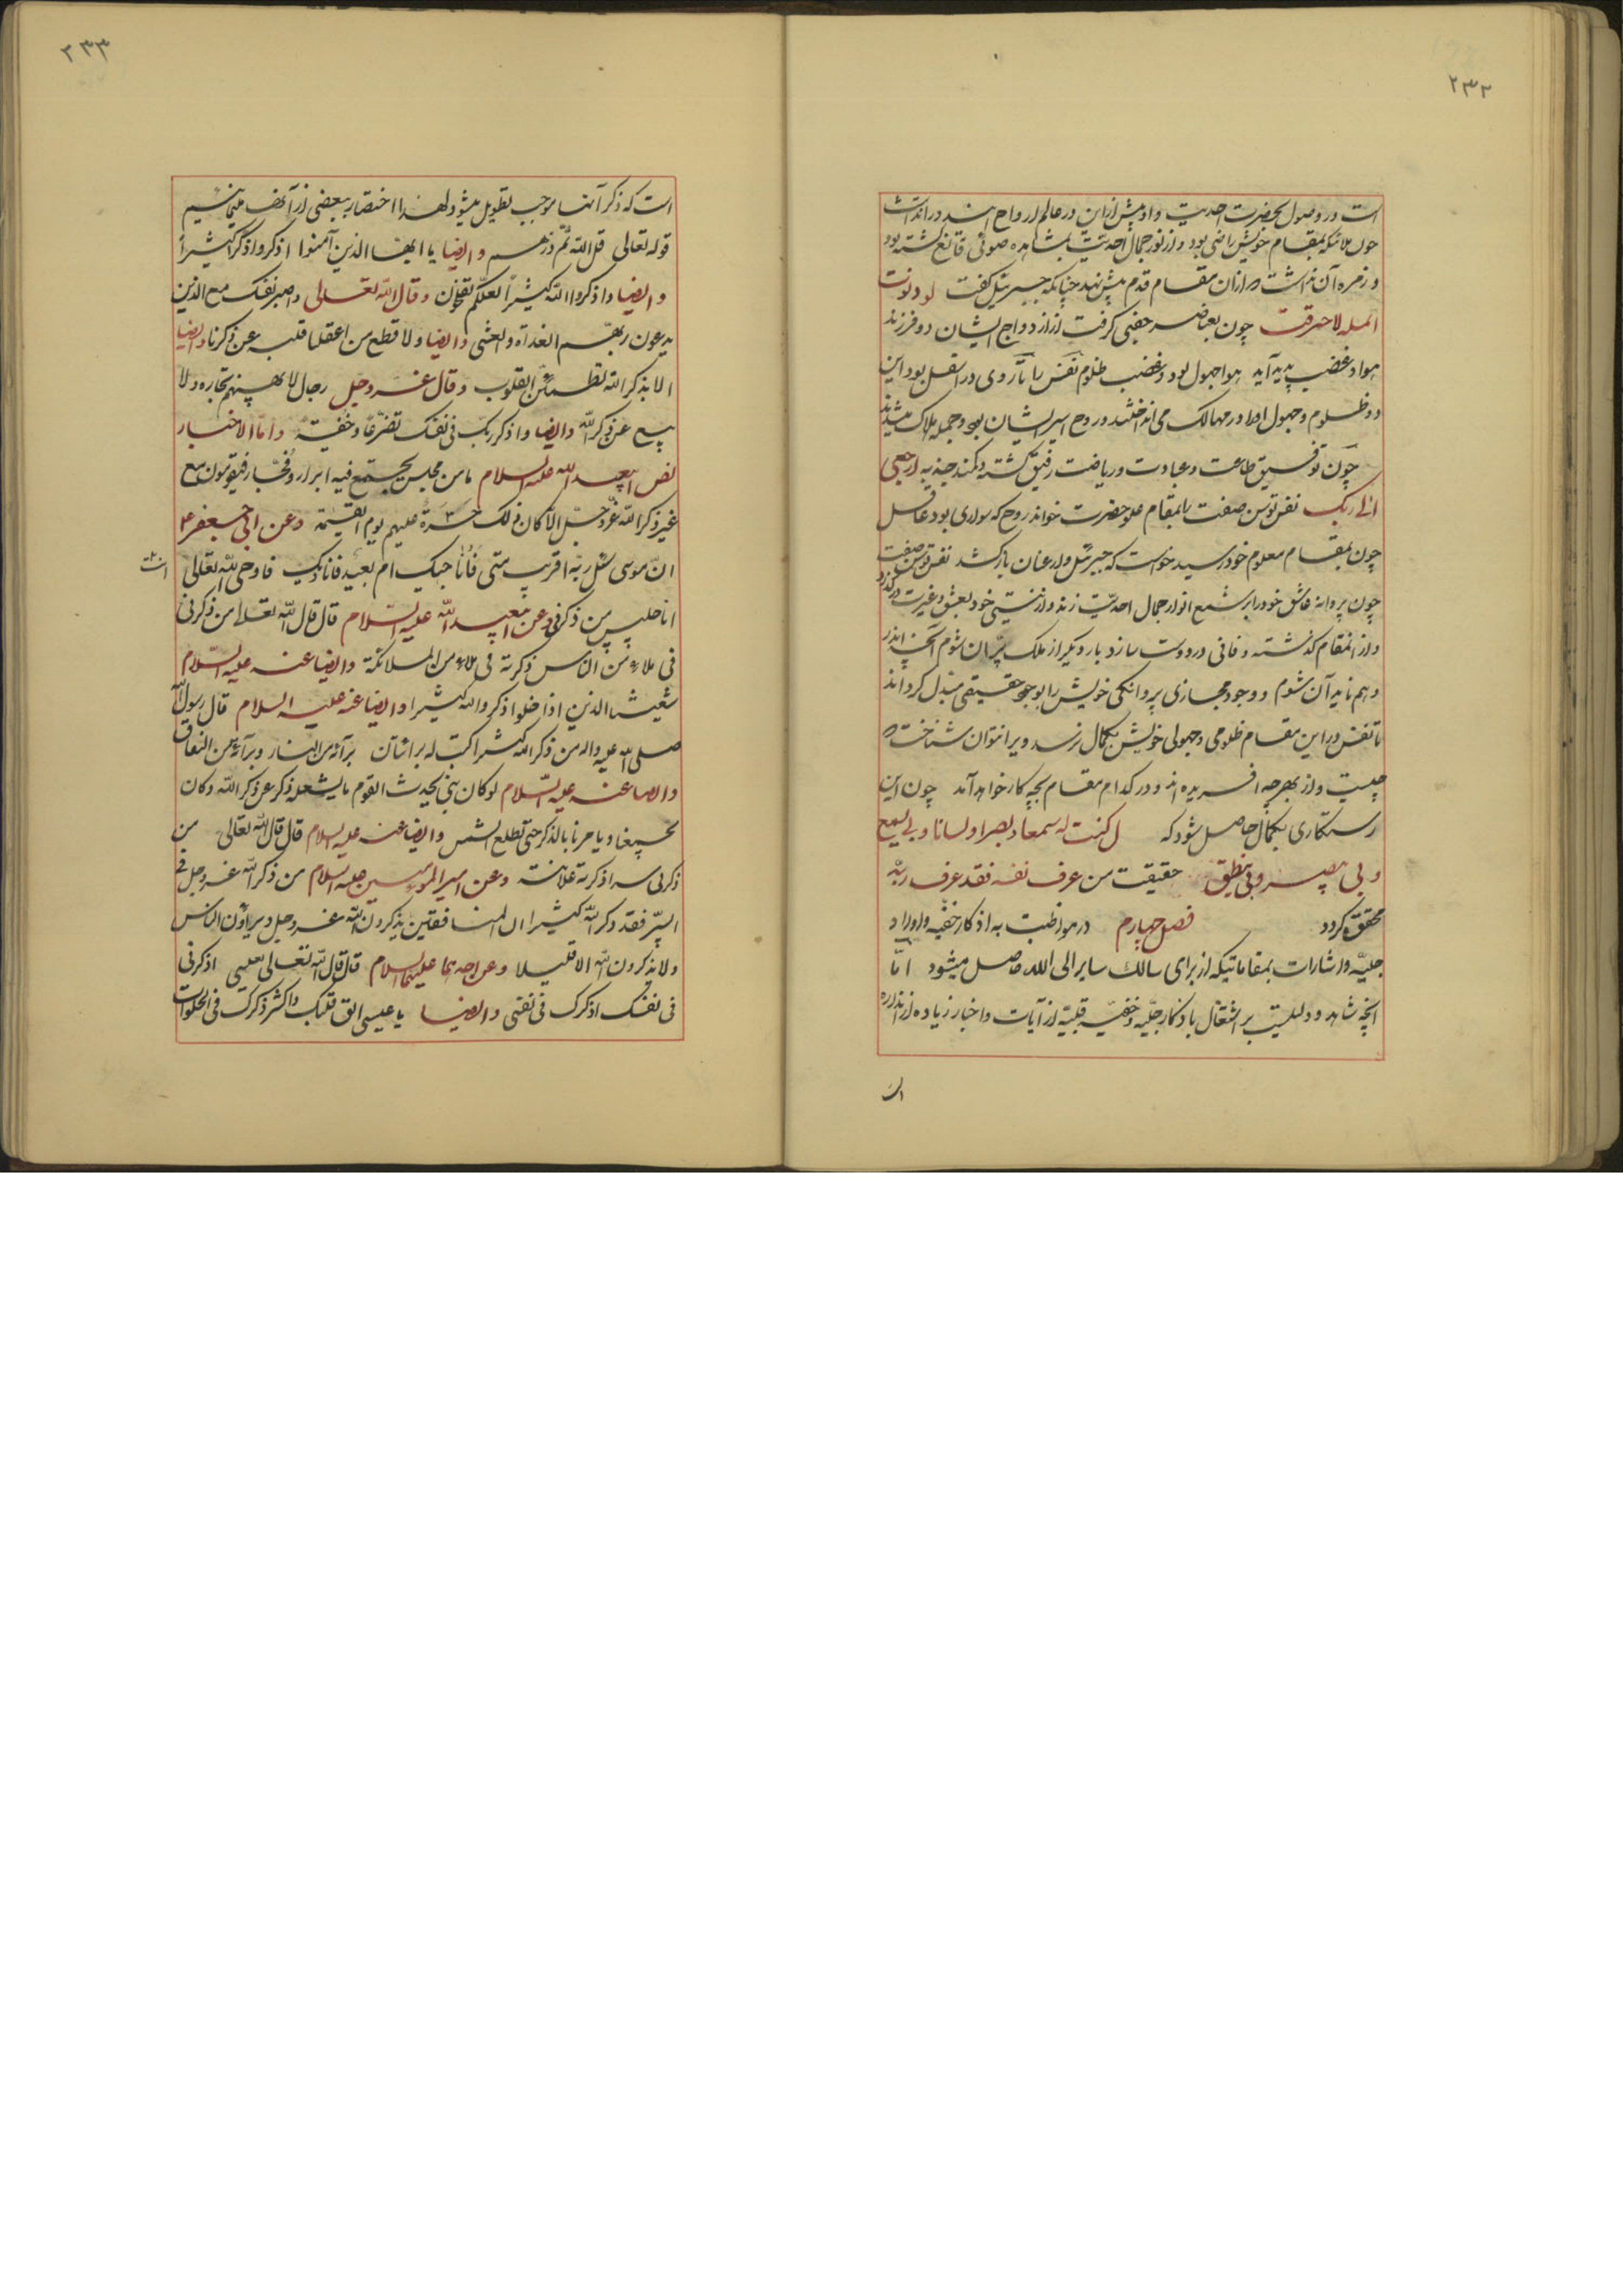 ۲۳۲
است در وصول بحضرت احدیت و او پیش ازین در عالم ارواح
چون ملائکه بمقام خویش راضی بود و از نور جمال احدیت بمشاهده ضوئی قانع گشته بود
و زهره آن نداشت که از آن مقام قدم پیش نهد چنانکه جبرئیل گفت لو دنوت
انملة لاحترقت چون بعناصر جفتی گرفت از ازدواج ایشان دو فرزند
هوا و غضب پدید آید هوا جهول بود و غضب ظلوم نفس را تا روی در اسفل بود این
دو ظلوم و جهول او را در مهالک می انداختند و روح اسیر ایشان بود و جمله هلاک میشدند
چون توفیق طاعت و عبادت و ریاضت رفیق گشته و کمند جذبه ارجعی
الی ربک نفس توسن صفت را بمقام علو حضرت خواند روح که سواری بود عاقل
چون بمقام معلوم خود رسید خواست که جبرئیل وار عنان بازکشد نفس توسن صفت
چون پروانه عاشق خود را بر شمع انوار جمال احدیت زند و از هستی خود بعشق و غیرت درگذرد
و از آنمقام گذشته و فانی در دوست سازد بار دیگر از ملک پران شوم آنچه اندر
وهم ناید آن شوم و وجود مجازی پروانگی خویش را بوجود حقیقی مبدل گرداند
تا نفس در این مقام ظلومی و جهولی خویش بکمال نرسد ویرا نتوان شناخت که
چیست و از بهر چه آفریده اند و در کدام مقام بچه کار خواهد آمد چون این
رستکاری بکمال حاصل شود که ل کنت له سمعا و بصرا و لسانا و بی یسمع
و بی یبصر و بی ینطق حقیقت من عرف نفسه فقد عرف ربه
محقق گردد فصل چهارم در مواظبت به اذکار خفیه و اوراد
جلیّه و اشارات بمقاماتیکه از برای سالک سایر الی الله حاصل میشود امّا
آنچه شاهد و دلیلیست بر اشتغال باذکار جلیّه و خفیّه قلبیّه از آیات و اخبار زیاده از اندازه
۲۳۳
است که ذکر آنها موجب تطویل میشود لهذا اختصار ببعضی از آنها مینمائیم
قوله تعالی قل الله ثم ذرهم و ایضا یا ایها الذین آمنوا اذکروا ذکرا کثیراً
و ایضا و اذکروا الله کثیراً لعلکم تفلحون و قال الله تعالی و اصبر نفسک مع الذین
یدعون ربهم الغداة والعشی و ایضا و لا تطع من اغفلنا قلبه عن ذکرنا و ایضا
الا بذکر الله تطمئن القلوب و قال عز و جل رجال لا تلهیهم تجارة ولا
بیع عن ذکر الله و ایضا و اذکر ربک فی نفسک تضرعا و خفیة و اما الاخبار
عبد الله علیه السلام ما من مجلس یجتمع فیه ابرار و فجار فیقومون مع
غیر ذکر الله عز و جل الا کان ذلک حسرة علیهم یوم القیمة و عن ابی جعفر ع
ان موسی سئل ربه اقریب منی فاناجیک ام بعید فانادیک فاوحی الله تعالی
انا جلیس من ذکرنی و عن ابیعبد الله علیه السلام قال قال الله تعالی من ذکرنی
فی ملاء من الناس ذکرته فی ملاء من الملائکة و ایضا عنه علیه السلام
شیعتنا الذین اذا خلوا ذکروا الله کثیرا و ایضا عنه علیه السلام قال رسول الله
صلی الله علیه و اله من ذکر الله کثیرا کتب له براتان برآئة من النار و برآئة من النفاق
و ایضا عنه علیه السلام لو کان بنی یحدث القوم ما یشغله ذکر عن ذکر الله و کان
بالذکر حتی تطلع الشمس و ایضا عنه علیه السلام قال قال الله تعالی من
ذکرنی سرا ذکرته علانیة و عن امیر المومنین علیه السلام من ذکر الله عز و جل فی
السّر فقد ذکر الله کثیرا ان المنافقین یذکرون الله عز و جل و یراؤن الناس
و لا یذکرون الله الا قلیلا و عن احدهما علیهما السلام قال قال الله تعالی لعیسی اذکرنی
فی نفسک اذکرک فی نفسی و ایضا یا عیسی الق قلبک و اکثر ذکرک فی الخلوات